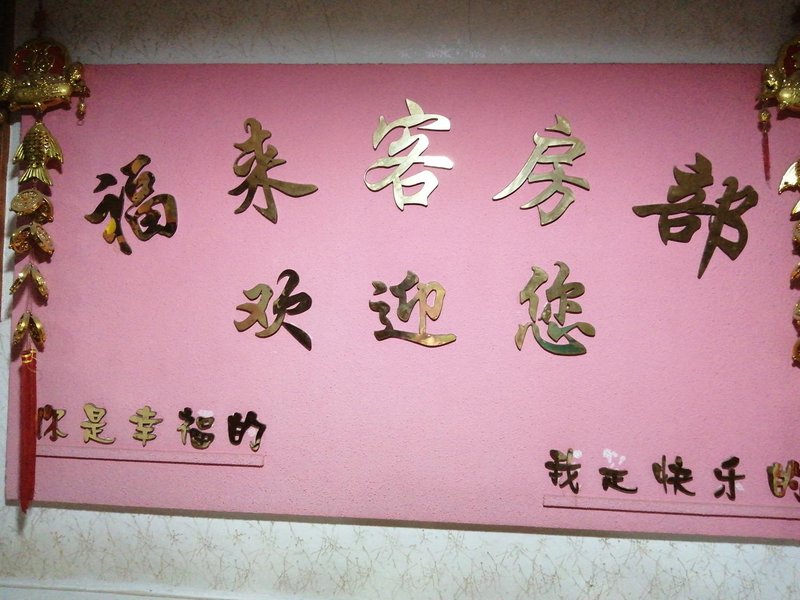 福来客房部
欢迎您
你是幸福的
我是快乐的